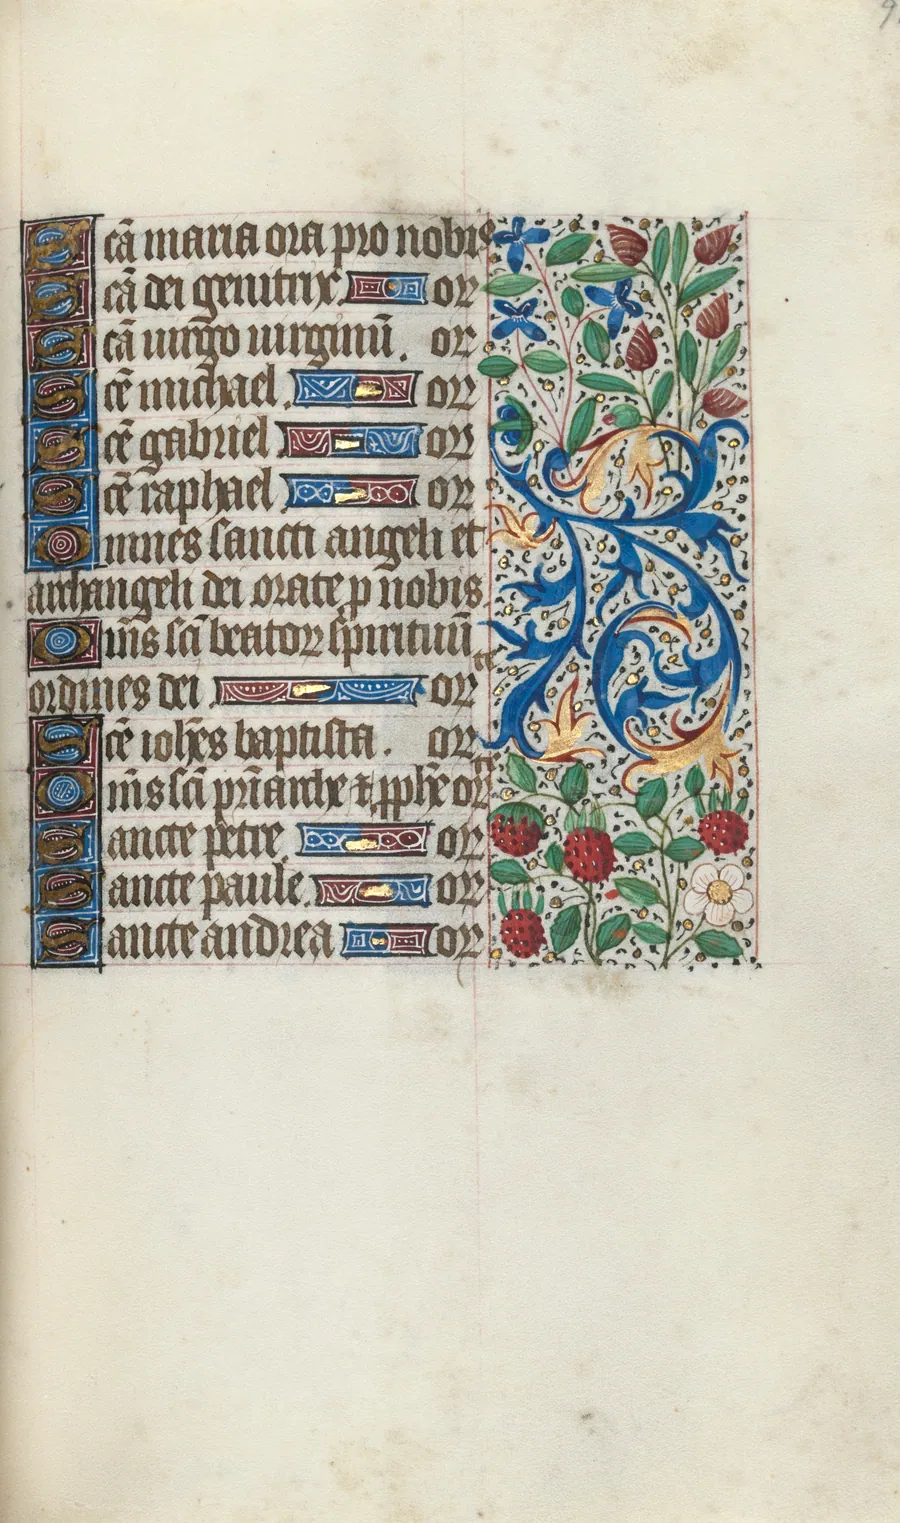 Scā maria ora pro nobis
Scā dei genitrix or
Scā uirgo uirginū. or
Scē michael. or
Scē gabriel or
Scē raphael or
Omnes sancti angeli et
archangeli dei orate p nobis
Om̄s sc̄i beatoꝝ spirituū
ordines dei or
Scē ioh̄es baptista. or
Om̄s sc̄i pr̄iarche ⁊ ꝓph̄e or
Sancte petre or
Sancte paule. or
Sancte andrea or